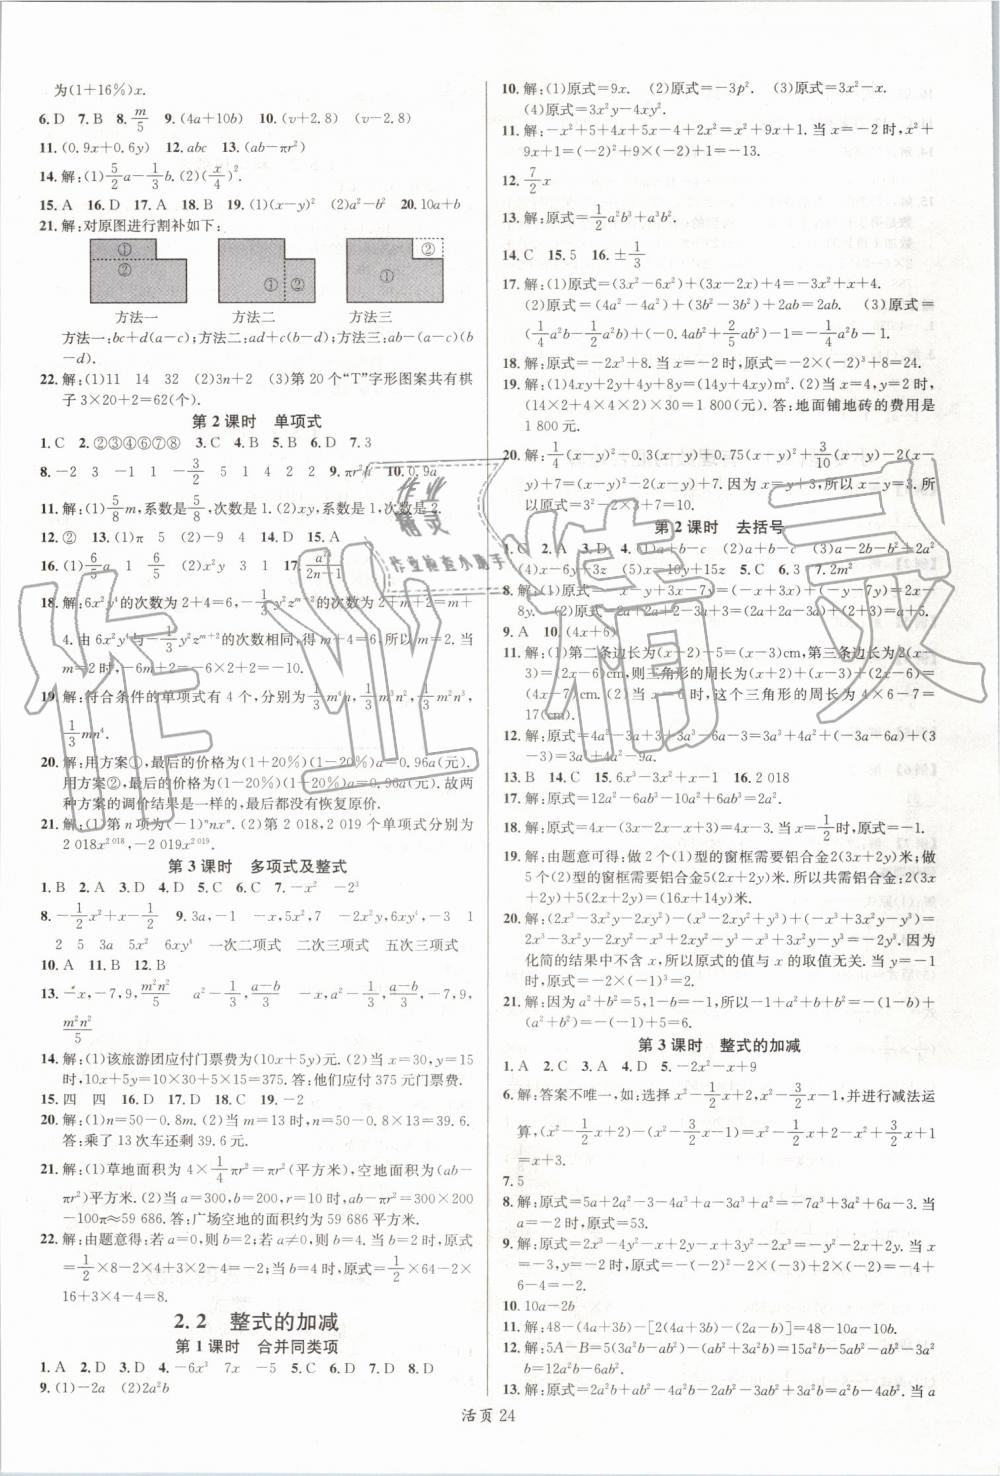 为(1+16%)x.
6. D 7. B 8. m/5 9. (4a+10b) 10. (v+2.8) (v-2.8)
11. (0.9x+0.6y) 12. abc 13. (ab-πr²)
14. 解:(1)5/2a-1/3b. (2)(x/4)².
15. A 16. D 17. A 18. B 19. (1)(x-y)² (2)a²-b² 20. 10a+b
21. 解:对原图进行割补如下:
① ② ① ② ① ②
方法一 方法二 方法三
方法一:bc+d(a-c);方法二:ad+c(b-d);方法三:ab-(a-c)(b
-d).
22. 解:(1)11 14 32 (2)3n+2 (3)第 20 个“T”字形图案共有棋
子 3×20+2=62(个).
第 2 课时 单项式
1. C 2. ②③④⑥⑦⑧ 3. C 4. B 5. B 6. D 7. 3
8. -2 3 -1 1 -3/2 5 1 4 2 2 9. πr²h 10. 0.9a
11. 解:(1)5/8m,系数是5/8,次数是1. (2)xy,系数是1,次数是2.
12. ② 13. (1)π 5 (2)-9 4 14. D 15. A
16. (1)6/5a 1 6/5 (2)x²y 3 1
18. 解:6x²y⁴的次数为 2+4=6,-1/3y²z^(m+2)的次数为 2+m+2=m+
4. 由题意6x²y⁴与-1/3y²z^(m+2)的次数相同,得 m+4=6,所以 m=2. 当
m=2时,-6m+2=-10.
19. 解:符合条件的单项式有 4 个,分别为1/3m⁴n,1/3m³n²,1/3m²n³,
1/3mn⁴.
20. 解:用方案①,最后的价格为(1+20%)(1-20%)a=0.96a(元).
用方案②,最后的价格为(1-20%)(1+20%)a=0.96a(元),故两
种方案的调价结果是一样的,最后都没有恢复原价.
21. 解:(1)第 n 项为(-1)ⁿnxⁿ. (2)第 2 018,2 019 个单项式分别为
2 018x^2 018,-2 019x^2 019.
第 3 课时 多项式及整式
1. B 2. A 3. C 4. D 5. D 6. C 7. -x² -2³
8. -1/2x²+x-1/2 9. 3a,-1 -x,5x²,7 -2x²y,6xy⁴,-3 1
2 5 3a 5x² 6xy⁴ 一次二项式 二次三项式 五次三项式
10. A 11. B 12. B
13. -x,-7,9,m²n²/5 a²-1/3,(a-b)/3 -x,a²-1/3,(a-b)/3,-7,9,
m²n²/5
14. 解:(1)该旅游团应付门票费为(10x+5y)元. (2)当 x=30,y=15
时,10x+5y=10×30+5×15=375. 答:他们应付 375 元门票费.
15. 四 四 16. D 17. D 18. C 19. -2
20. 解:(1)n=50-0.8m. (2)当 m=13 时,n=50-0.8×13=39.6.
答:乘了 13 次车还剩 39.6 元.
21. 解:(1)草地面积为 4×1/4πr²=πr²(平方米),空地面积为(ab-
πr²)平方米. (2)当 a=300,b=200,r=10 时,ab-πr²=300×200-
100π≈59 686. 答:广场空地的面积约为 59 686 平方米.
22. 解:由题意得:若 a=0,则 b=2;若 b=0,则 a=4. 当 b=2 时,原式
=1/2×8-2×4+3×2-4=-2;当 b=4 时,原式=1/2×64-2×
16+3×4-4=8.
2.2 整式的加减
第 1 课时 合并同类项
1. A 2. D 3. D 4. -6x³ 7x -5 5. B 6. B 7. D 8. D
9. (1)-2a (2)2a²b
10. 解:(1)原式=9x. (2)原式=-3p². (3)原式=3x²-x.
(4)原式=3x²y-4xy².
11. 解:-x²+5+4x-5x+4+2x²+10x=x²+9x+1. 当 x=-2 时,x²+
9x+1=(-2)²+9×(-2)+1=-13.
12. 7/2x
13. 解:原式=1/2a²b³+a³b².
14. C 15. 5 16. ±1/3
17. 解:(1)原式=(3x²-6x²)+(3x-2x)+4=-3x²+x+4.
(2)原式=(4a²-4a²)+(3b²-3b²)+2ab=2ab. (3)原式=
(1/4a²b-1/2a²b)+(-0.4ab²+2/5ab²)-1=-1/4a²b-1.
18. 解:原式=-2x³+8. 当 x=-2 时,原式=-2×(-2)³+8=24.
19. 解:(1)4xy+2xy+4y+8y=(14y+4xy)m². (2)当 x=4,y=2 时,
(14×2+4×4×2)×30=1 800(元). 答:地面铺地砖的费用是
1 800 元.
20. 解:1/4(x-y)²-0.3(x+y)+0.75(x-y)²+3/10(x+y)-2(x-
y)+7=(x-y)²-2(x-y)+7. 因为x=y+3,所以 x-y=3. 所以
原式=3²-2×3+7=10.
第 2 课时 去括号
1. C 2. A 3. D 4. (1)a+b-c (2)a+b-c (3)2a-2b-2b²+2a²
(4)x-6y+3z (5)x-10y+15z 5. C 6. 3 7. 2m²
8. 解:(1)原式=-y+3x-7y=(-y-7y)+3x=3x-
8y. (2)原式=2a+2a+2-3a+3=(2a+2a-3a)+(2+3)=a+5.
9. A 10. (4x+6)
11. 解:(1)第二条边长为(x-2)-5=(x-3)cm,第三条边长为2(x-
3)cm,则三角形的周长为x+(x-3)+2(x-3)
=(4x-7)cm. (2)当 x=6 时,这个三角形的周长为 4×6-7=
17(cm).
12. 解:原式=4a²-3a+3+3a³-6a-3=3a³+4a²+(-3a-6a)+(3
-3)=3a³+4a²-9a.
13. B 14. C 15. 6x³-3x²+x-1 16. 2 018
17. 解:原式=12a²-6ab³-10a²+6ab³=2a².
18. 解:原式=4x-3x+3y-x-6y=-3y. 当 x=1/2时,原式=-1.
19. 解:由题意可得:做 2 个(1)型的窗框需要铝合金2(3x+2y)米;做
5 个(2)型的窗框需要铝合金5(2x+2y)米. 所以共需铝合金:2(3x
+2y)+5(2x+2y)=(16x+14y)米.
20. 解:(2x³-3x²y-2xy²)-(x³-2xy²+y³)+(-x³+3x²y-y³)=
2x³-3x²y-2xy²-x³+2xy²-y³-x³+3x²y-y³=-2y³. 因为
化简的结果中不含 x,所以原式的值与 x 的取值无关. 当 y=-1
时,原式=-2×(-1)³=2.
21. 解:因为 a²+b²=5,1-b=-1,所以-1+a²+b+b²=-(1-b)+
(a²+b²)=1+5=6.
第 3 课时 整式的加减
1. A 2. C 3. A 4. D 5. -2x²-x+9
6. 解:答案不唯一,如:选择 x²-1/2x+2,x²-3/2x-1,并进行减法运
算,(x²-1/2x+2)-(x²-3/2x-1)=x²-1/2x+2-x²+3/2x+1
=x+3.
7. 5
8. 解:原式=5a+2a²-3-4a³-a+3a³-a²=-7a³+3a²+6a-3. 当
a=-2 时,原式=53.
9. 解:原式=2x³-4y²-x+2y+x-3y²-2x³=-7y²+2y. 当 x
=-3,y=-2 时,原式=-7×(-2)²+2×(-2)=-7×4-4
10. 10a-2b
11. 解:48-(4a-b)-[2(4a+3b)-(2a-b)]=48-10a-6b.
12. 解:5A-B=5(3a²b-ab²)-(ab²+3a²b)=15a²b-5ab²-ab²-3a
²b=12a²b-6ab².
13. 解:原式=2a²b+ab²-2a²b+2ab²-a²b-2ab²=-a²b+ab². 当 a
活页 24